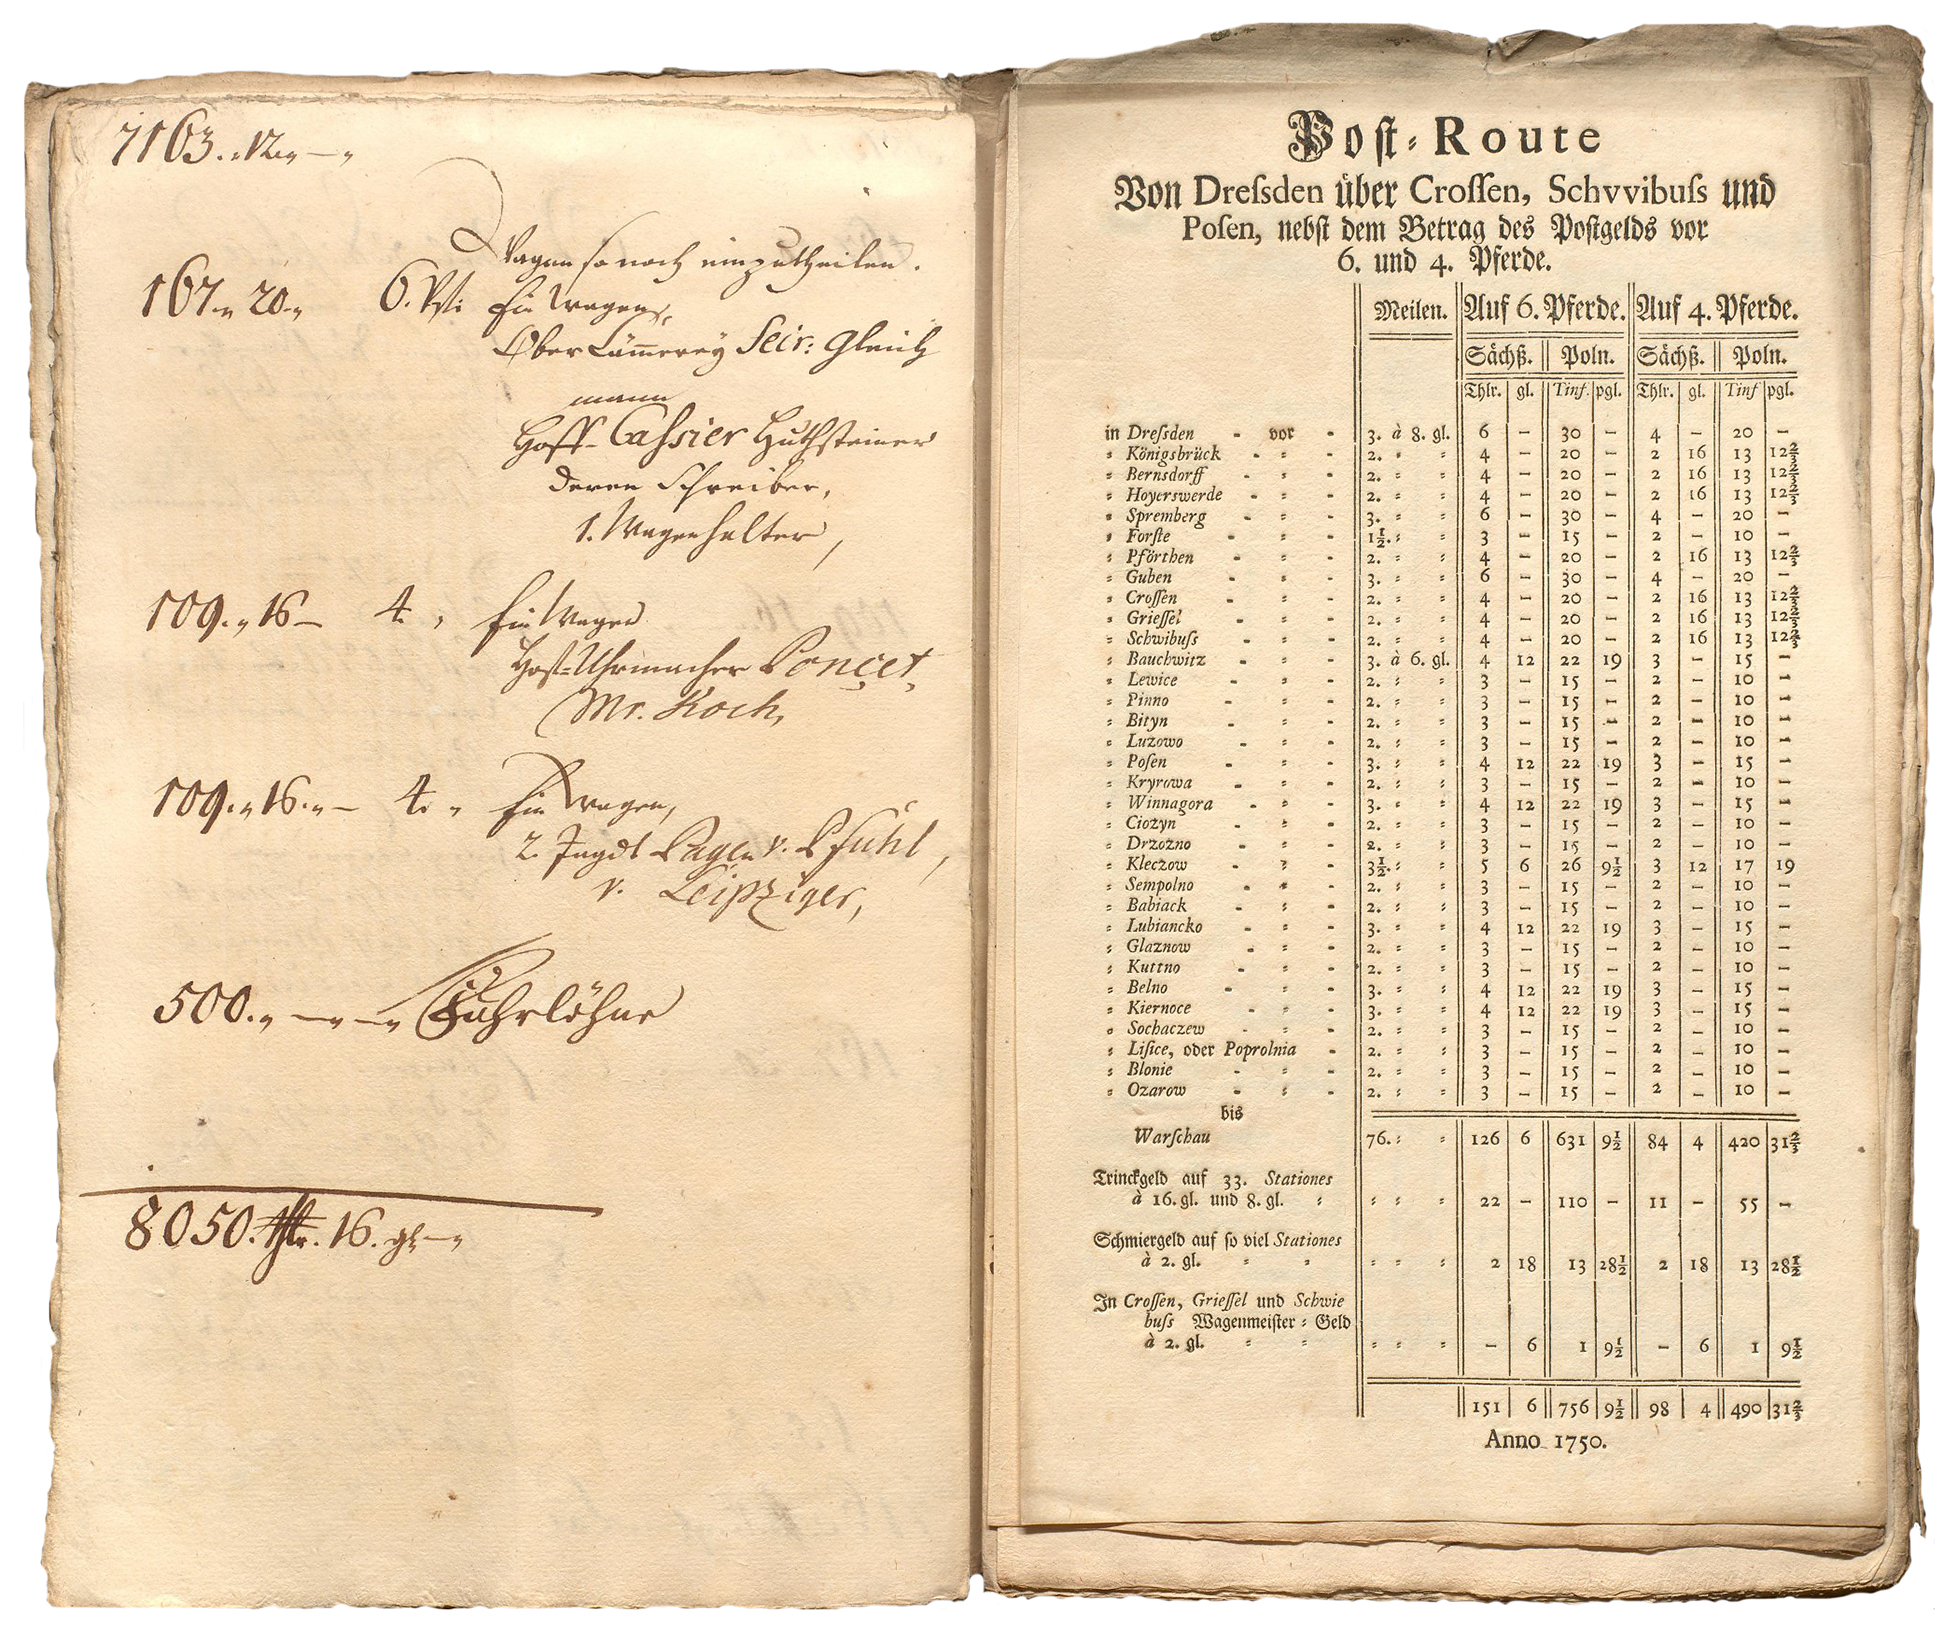 7163.„12.„—„
Wagen so noch einzutheilen.
167.„ 20.„ 6. Pf: Ein Wagen,
Ober Cämmerey Secr: Gleich
mann
Hoff-Cassier Huthsteiner
deren Schreiber,
1. Wagenhalter,
109.„16 — 4. „ Ein Wagen
Hoff-Uhrmacher Poncet,
Mr. Koch,
109.„16.„— 4. „ Ein Wagen,
2. Jagdt Pagen v. Pfühl,
v. Leipziger,
500.„ —„—„ Fuhrlöhne
8050. thlr. 16. gl—„
Poſt-Route
Von Dreſsden über Croſſen, Schvvibuſs und
Poſen, nebſt dem Betrag des Poſtgelds vor
6. und 4. Pferde.
Meilen. Auf 6. Pferde. Auf 4. Pferde.
Sächß. Poln. Sächß. Poln.
Thlr. gl. Tinf. pgl. Thlr. gl. Tinf pgl.
in Dreſsden - vor - 3. à 8. gl. 6 — 30 — 4 — 20 —
= Königsbrück - = - 2. = = 4 — 20 — 2 16 13 12⅔
= Bernsdorff - = - 2. = = 4 — 20 — 2 16 13 12⅔
= Hoyerswerde - = - 2. = = 4 — 20 — 2 16 13 12⅔
= Spremberg - = - 3. = = 6 — 30 — 4 — 20 —
= Forſte - = - 1½. = = 3 — 15 — 2 — 10 —
= Pförthen - = - 2. = = 4 — 20 — 2 16 13 12⅔
= Guben - = - 3. = = 6 — 30 — 4 — 20 —
= Croſſen - = - 2. = = 4 — 20 — 2 16 13 12⅔
= Grieſſel - = - 2. = = 4 — 20 — 2 16 13 12⅔
= Schwibuſs - = - 2. = = 4 — 20 — 2 16 13 12⅔
= Bauchwitz - = - 3. à 6. gl. 4 12 22 19 3 — 15 —
= Lewice - = - 2. = = 3 — 15 — 2 — 10 —
= Pinno - = - 2. = = 3 — 15 — 2 — 10 —
= Bityn - = - 2. = = 3 — 15 — 2 — 10 —
= Luzowo - = - 2. = = 3 — 15 — 2 — 10 —
= Poſen - = - 3. = = 4 12 22 19 3 — 15 —
= Kryrowa - = - 2. = = 3 — 15 — 2 — 10 —
= Winnagora - = - 3. = = 4 12 22 19 3 — 15 —
= Ciozyn - = - 2. = = 3 — 15 — 2 — 10 —
= Drzozno - = - 2. = = 3 — 15 — 2 — 10 —
= Kleczow - = - 3½. = = 5 6 26 9½ 3 12 17 19
= Sempolno - = - 2. = = 3 — 15 — 2 — 10 —
= Babiack - = - 2. = = 3 — 15 — 2 — 10 —
= Lubiancko - = - 3. = = 4 12 22 19 3 — 15 —
= Glaznow - = - 2. = = 3 — 15 — 2 — 10 —
= Kuttno - = - 2. = = 3 — 15 — 2 — 10 —
= Belno - = - 3. = = 4 12 22 19 3 — 15 —
= Kiernoce - = - 3. = = 4 12 22 19 3 — 15 —
= Sochaczew - = - 2. = = 3 — 15 — 2 — 10 —
= Liſice, oder Poprolnia - 2. = = 3 — 15 — 2 — 10 —
= Blonie - = - 2. = = 3 — 15 — 2 — 10 —
= Ozarow - = - 2. = = 3 — 15 — 2 — 10 —
bis
Warſchau 76. = = 126 6 631 9½ 84 4 420 31⅔
Trinckgeld auf 33. Stationes
à 16. gl. und 8. gl. = = = = 22 — 110 — 11 — 55 —
Schmiergeld auf ſo viel Stationes
à 2. gl. = = = = = 2 18 13 28½ 2 18 13 28½
In Croſſen, Grieſſel und Schwie
buſs Wagenmeiſter = Geld
à 2. gl. = = = = = — 6 1 9½ — 6 1 9½
151 6 756 9½ 98 4 490 31⅔
Anno 1750.